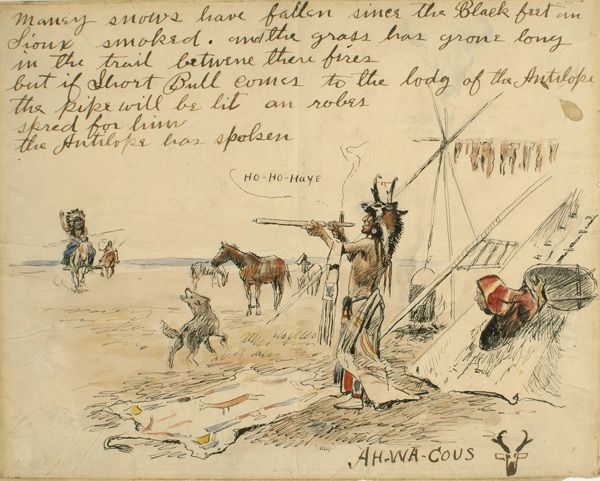 Maney snows have fallen since the Black feet an
Sioux smoked. and the grass has grone long
in the trail betwine there fires
but if Short Bull comes to the lodg of the Antilope
the pipe will be lit an robes
spred for him
the Antilope has spoken
HO-HO-HAYE
AH-WA-COUS